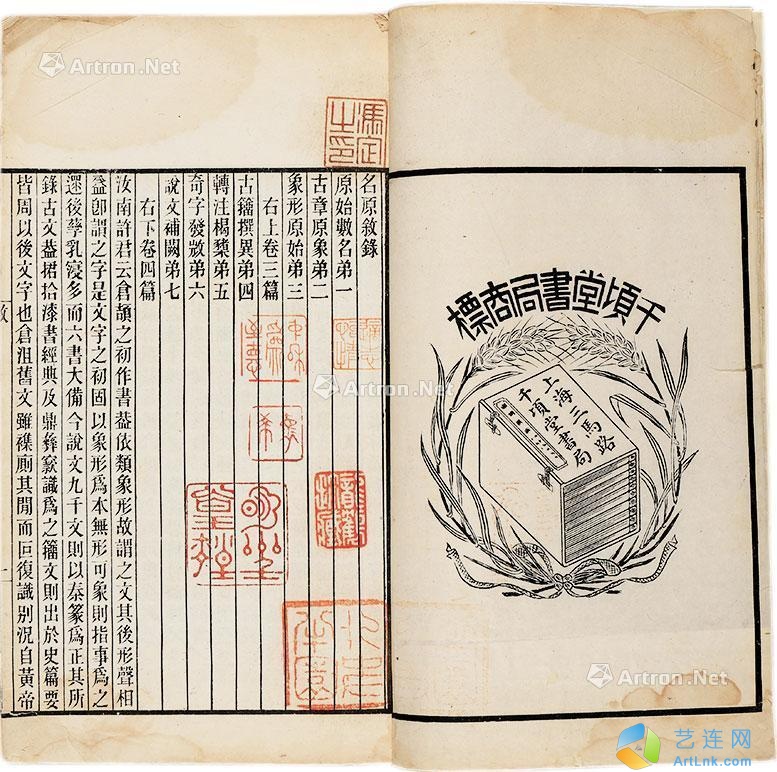 千頃堂書局商標
上海三馬路
千頃堂書局
名原敘錄
原始數名弟一
古章原象弟二
象形原始弟三
右上卷三篇
古籒撰異弟四
轉注楬櫫弟五
奇字發微弟六
說文補闕弟七
右下卷四篇
汝南許君云倉頡之初作書葢依類象形故謂之文其後形聲相
益卽謂之字是文字之初固以象形爲本無形可象則指事爲之
遝後孳乳寖多而六書大備今說文九千文則以秦篆爲正其所
錄古文葢捃拾漆書經典及鼎彝窾識爲之籒文則出於史篇要
皆周以後文字也倉沮舊文雖襍廁其閒而叵復識別況自黃帝
敘
一
馮定
之印
Artron.Net
Artron.Net
Artron.Net
Artron.Net
艺连网
ArtLnk.com